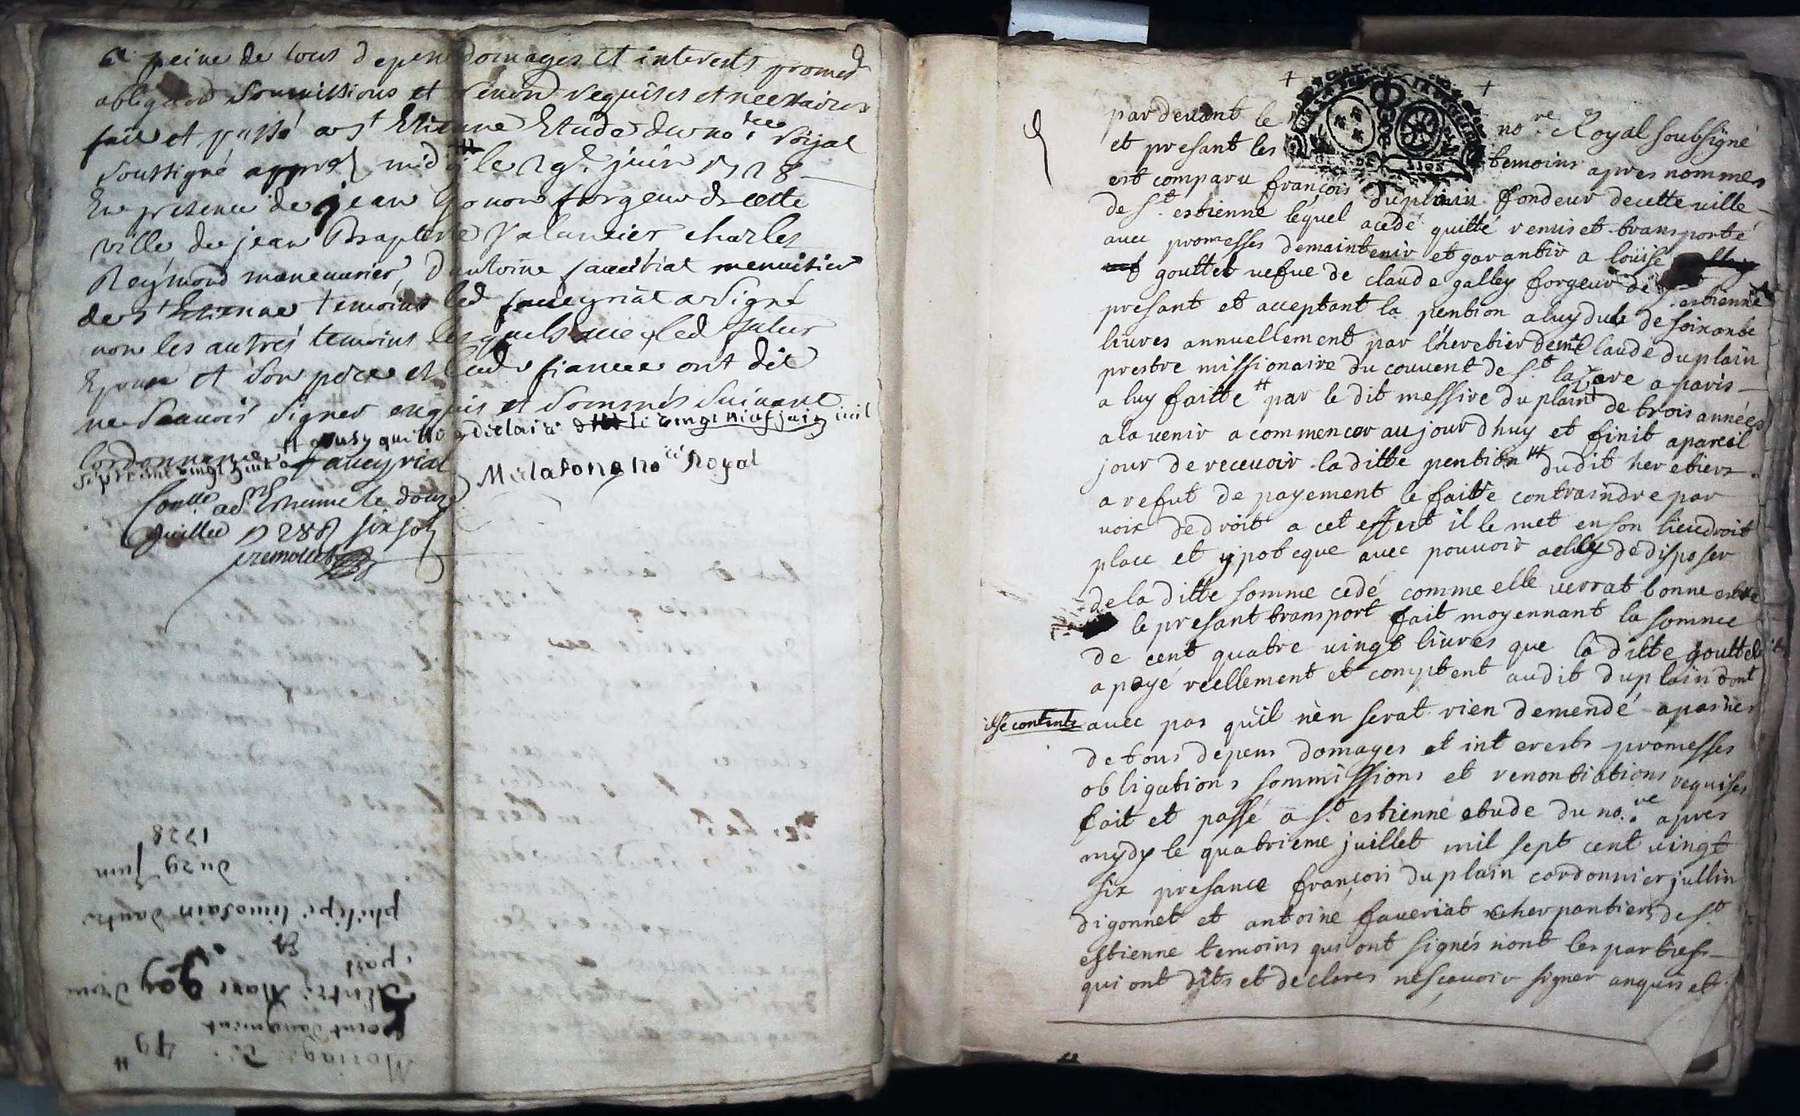 a peine de tous depens domages et interests promes
obligaõns soumissions et renonõns requises et necessaires
fait et passé a st Etienne Etude du nore roijal
soussigné appres midy le 29e juin 1728
En presence de jean forgeur de cette
ville de jean Baptiste charles
Reymond maneuvrier d'antoine faveyriat menuisier
de st Etienne temoins led faveyriat a signé
non les autres temoins lesquels avec led futur
Epoux et son pere et lad fiancee ont dit
ne scavoir signer enquis et sommés suivant
lordonnance
faveyriat
no re Royal
Conlle a st Etienne le douze
Juillet 1728 six sols
Mariage de
Entre Marc gay dune
part
Et
philipe limosain dautre
du 29 Juin
1728
par devant le nore Royal soubsigné
et presant les temoins apres nommes
est comparu françois duplain fondeur de cette ville
de st estienne lequel a cedé quitté remis et transporté
avec promesses de maintenir et garantir a loüise
gouttet vefue de claude galley forgeur de st estienne
presant et acceptant la pention a luy dub de soixante
livres annuellement par lheretier de mre claude duplain
prestre missionaire du couvent de st lazare a paris
a luy faitte par le dit messire duplain de trois années
a la venir a commencer au jour dhuy et finit a pareil
jour de recevoir la ditte pention dudit heretiers
a refut de payement le faitte contraindre par
voix de droit a cet effert il le met en son lieu droit
place et ypoteque avec pouvoir a elle de disposer
de la ditte somme cedé comme elle verrat bonne estre
le presant transport fait moyennant la somme
de cent quatre vingt livres que la ditte gouttet
a payé reellement et comptent audit duplain dont
il se contente avec pas qu'il n'en serat rien demendé a paines
de tous depens domages et interests promesses
obligations sommissions et renontiations requises
fait et passé a st estienne etude du nore apres
mydy le quatrieme juillet mil sept cent vingt
six presance françois duplain cordonnier jullin
digonnet et antoine faveriat cherpantiers de st
estienne temoins qui ont signés nont les parties
qui ont dits et declares ne scavoir signer anquis et